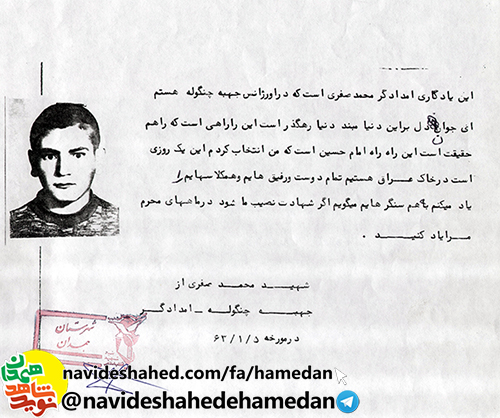 این یادگاری امدادگر محمد صفری است که در اورژانس جبهه چنگوله هستم
ای جوان دل براین دنیا مبند دنیا رهگذر است این راراهی است که راهم
حقیقت است این راه راه امام حسین است که من انتخاب کردم این یک روزی
است در خاک عراق هستیم تمام دوست و رفیق هایم و همکلاسهایم را
یاد میکنم به هم سنگرهایم میگویم اگر شهادت نصیب ما شود در ماههای محرم
مرا یاد کنید .
شهید محمد صفری از
جبهه چنگوله - امدادگر
درمورخه ۶۲/۱/۵
شهرستان
همدان
نوید شاهد
همدان
navideshahed.com/fa/hamedan
@navideshahedehamedan